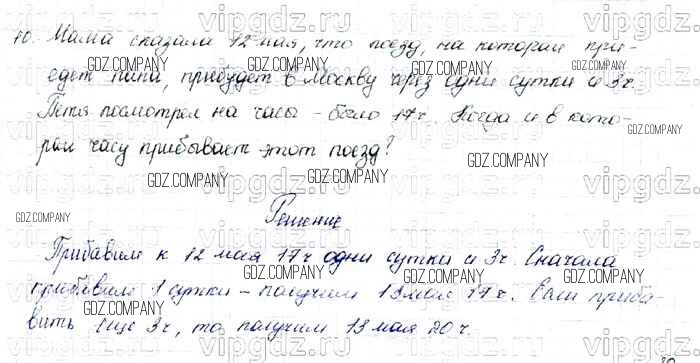 10. Мама сказала 12 мая, что поезд, на котором при-
едет папа, прибудет в Москву через одни сутки и 3ч.
Петя посмотрел на часы - было 17ч. Когда и в кото-
ром часу прибывает этот поезд?
Решение
Прибавим к 12 мая 17ч одни сутки и 3ч. Сначала
прибавим 1 сутки - получим 13 мая 17ч. Если приба-
вить еще 3ч, то получим 13 мая 20ч.
vipgdz.ru
GDZ.COMPANY